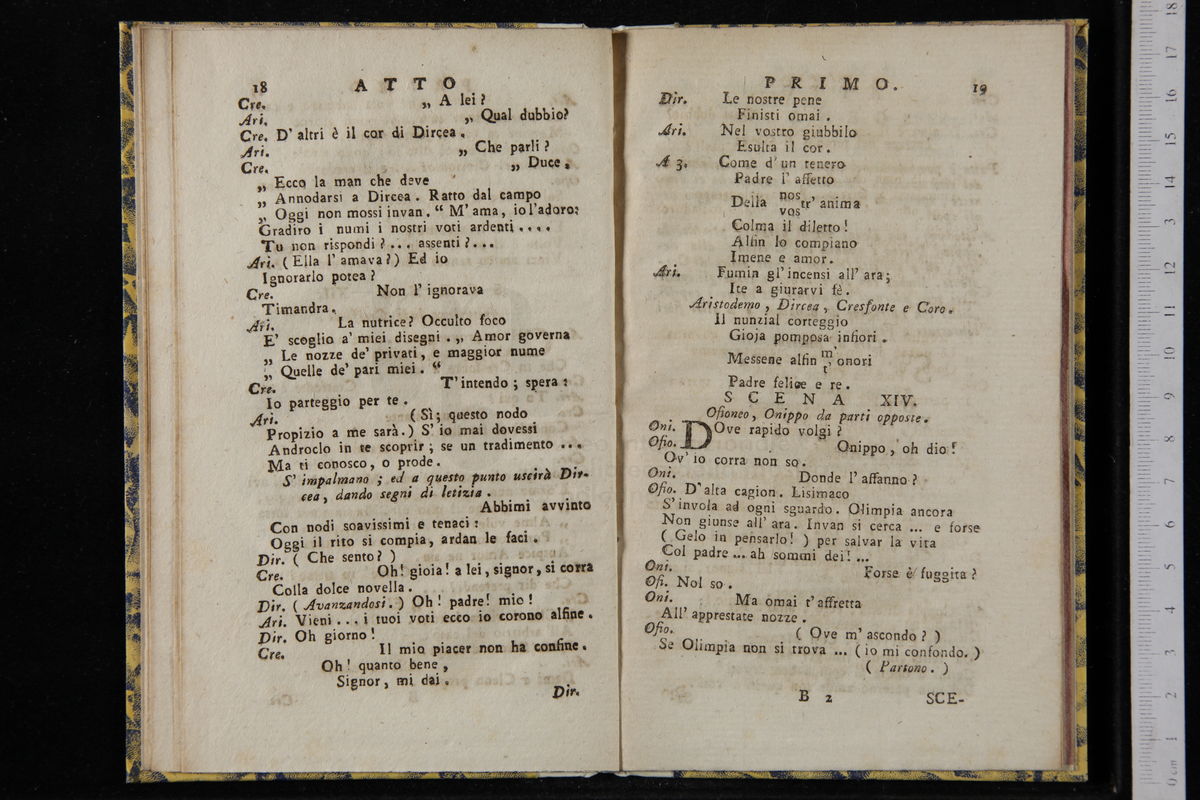 18 ATTO
Cre. „ A lei?
Ari. „ Qual dubbio?
Cre. D' altri è il cor di Dircea.
Ari. „ Che parli?
Cre. „ Duce,
„ Ecco la man che deve
„ Annodarsi a Dircea. Ratto dal campo
„ Oggi non mossi invan. “ M' ama, io l'adoro:
Gradiro i numi i nostri voti ardenti....
Tu non rispondi?... assenti?...
Ari. (Ella l' amava?) Ed io
Ignorarlo potea?
Cre. Non l' ignorava
Timandra.
Ari. La nutrice? Occulto foco
E' scoglio a' miei disegni. „ Amor governa
„ Le nozze de' privati, e maggior nume
„ Quelle de' pari miei. “
Cre. T' intendo; spera:
Io parteggio per te.
Ari. (Sì; questo nodo
Propizio a me sarà.) S' io mai dovessi
Androclo in te scoprir; se un tradimento ...
Ma ti conosco, o prode.
S' impalmano; ed a questo punto uscirà Dir-
cea, dando segni di letizia.
Abbimi avvinto
Con nodi soavissimi e tenaci:
Oggi il rito si compia, ardan le faci.
Dir. ( Che sento? )
Cre. Oh! gioia! a lei, signor, si corra
Colla dolce novella.
Dir. ( Avanzandosi. ) Oh! padre! mio!
Ari. Vieni... i tuoi voti ecco io corono alfine.
Dir. Oh giorno!
Cre. Il mio piacer non ha confine.
Oh! quanto bene,
Signor, mi dai.
Dir.
PRIMO. 19
Dir. Le nostre pene
Finisti omai.
Ari. Nel vostro giubbilo
Esulta il cor.
A 3. Come d' un tenero
Padre l' affetto
Della nos tr' anima
vos
Colma il diletto!
Alfin lo compiano
Imene e amor.
Ari. Fumin gl' incensi all' ara;
Ite a giurarvi fè.
Aristodemo, Dircea, Cresfonte e Coro.
Il nunzial corteggio
Gioja pomposa infiori.
Messene alfin m' onori
t'
Padre felice e re.
SCENA XIV.
Ofioneo, Onippo da parti opposte.
Oni. DOve rapido volgi?
Ofio. Onippo, oh dio!
Ov' io corra non so.
Oni. Donde l' affanno?
Ofio. D' alta cagion. Lisimaco
S' invola ad ogni sguardo. Olimpia ancora
Non giunse all' ara. Invan si cerca ... e forse
( Gelo in pensarlo! ) per salvar la vita
Col padre ... ah sommi dei! ...
Oni. Forse è fuggita?
Ofi. Nol so.
Oni. Ma omai t' affretta
All' apprestate nozze.
Ofio. ( Ove m' ascondo? )
Se Olimpia non si trova ... ( io mi confondo. )
( Partono. )
B 2 SCE-
0 cm 1 2 3 4 5 6 7 8 9 10 11 12 13 14 15 16 17 18